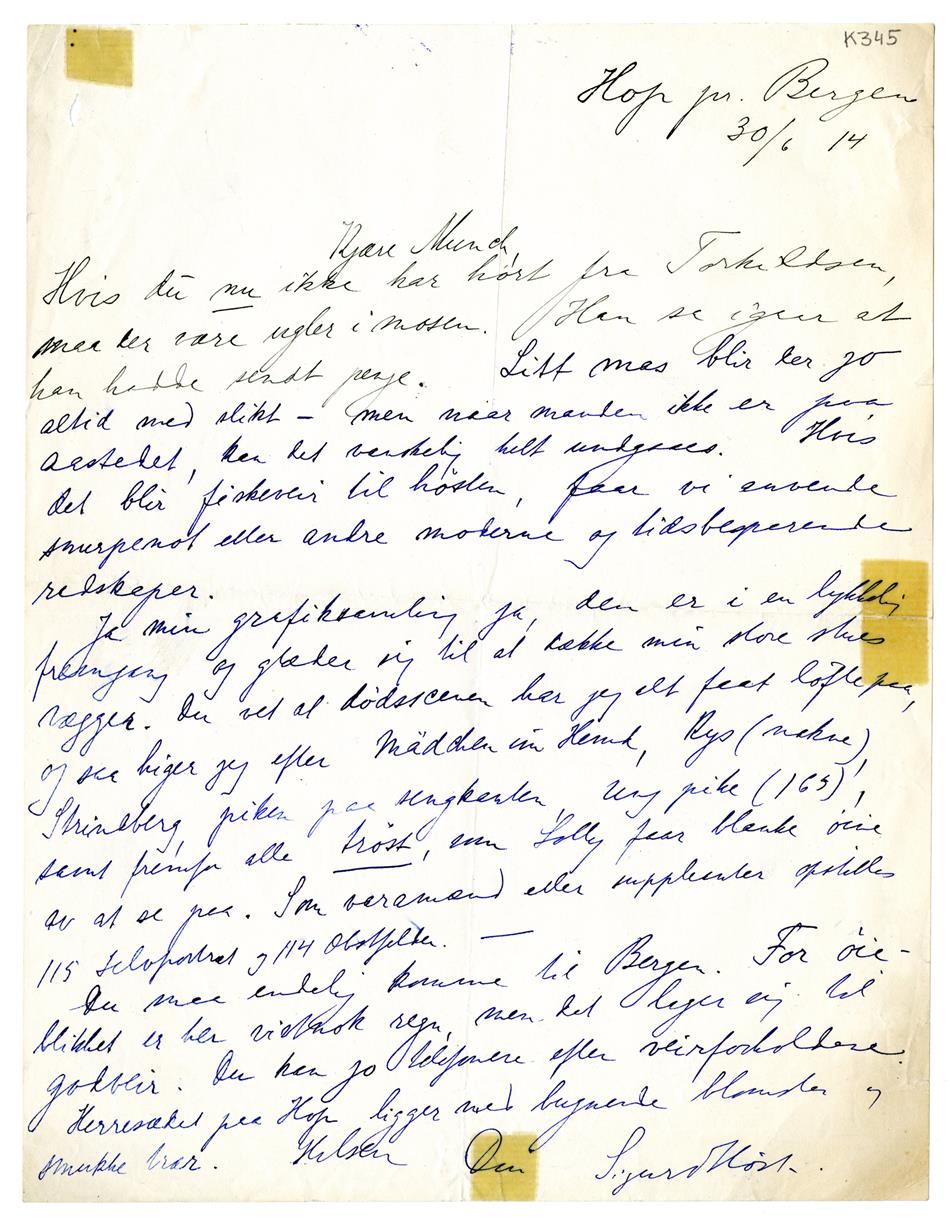 K345
Hop pr. Bergen
30/6 14
Kjære Munch,
Hvis du nu ikke har hørt fra Torkildsen,
maa der være ugler i mosen. Han sa igaar at
han hadde sendt penge. Litt mas blir der jo
altid med slikt – men naar manden ikke er paa
aastedet, kan det vanskelig helt undgaaes. Hvis
det blir fiskeveir til høsten, faar vi anvende
snurpenot eller andre moderne og tidsbesparende
redskaper.
Ja min grafiksamling ja, den er i en lykkelig
fremgang og glæder sig til at dække min store stues
vægger. Du vet at dødsscenen har jeg alt faat løfte paa,
og saa higer jeg efter Mädchen im Hemd, Kys (nakne),
Strindberg, piken paa sengkanten, Ung pike (165),
samt fremfor alle Trøst, som Solly faar blanke øine
av at se paa. Som varamænd eller suppleanter opstilles
115 Selvportræt og 114 Obstfelder. —
Du maa endelig komme til Bergen. For øie-
blikket er her vistnok regn, men det lager sig til
godveir. Du kan jo telefonere efter veirforholdene.
Herresædet paa Hop ligger med bugnende blomster og
smukke trær. Hilsen Din Sigurd Høst.